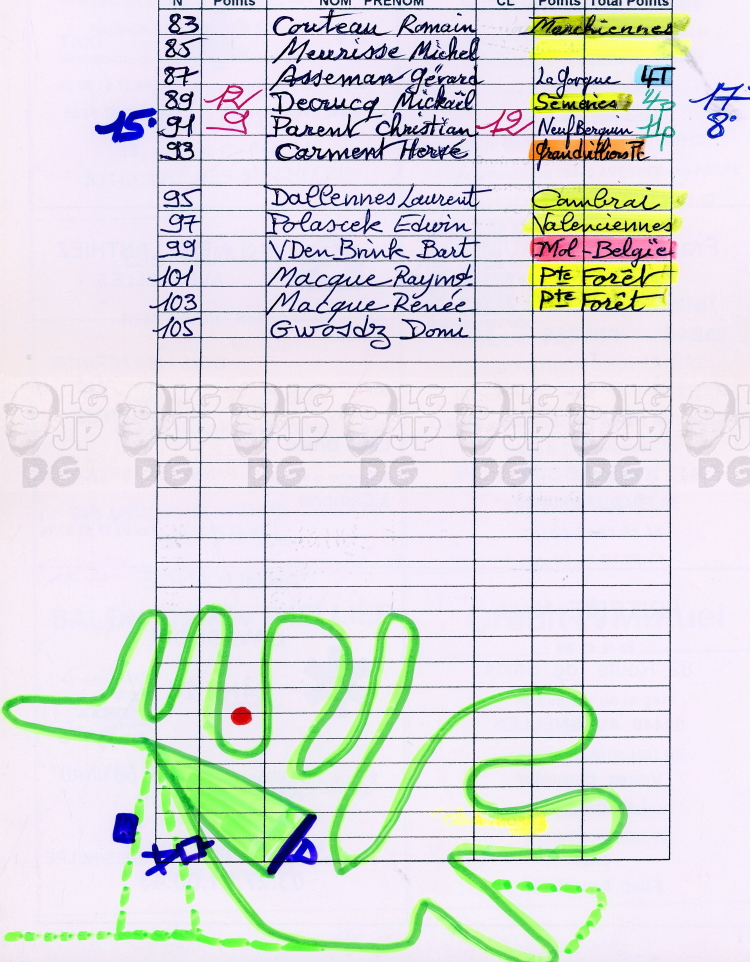 N Points NOM PRENOM CL Points Total Points
83 Couteau Romain Marchiennes
85 Meurisse Michel
87 Asseman Gérard La Gorgue 4T
89 12/ Decrucq Mickaël Semeries 17
15 91 9 Parent Christian 12 Neuf Berquin 8
93 Carment Hervé
95 Dallennes Laurent Cambrai
97 Polascek Edwin Valenciennes
99 VDen Brink Bart Mol-Belgïe
101 Macque Raymd. Pte Forêt
103 Macque Renée Pte Forêt
105 Gwosdz Domi
LG JP DG LG JP DG LG JP DG LG JP DG LG JP DG LG JP DG LG JP DG